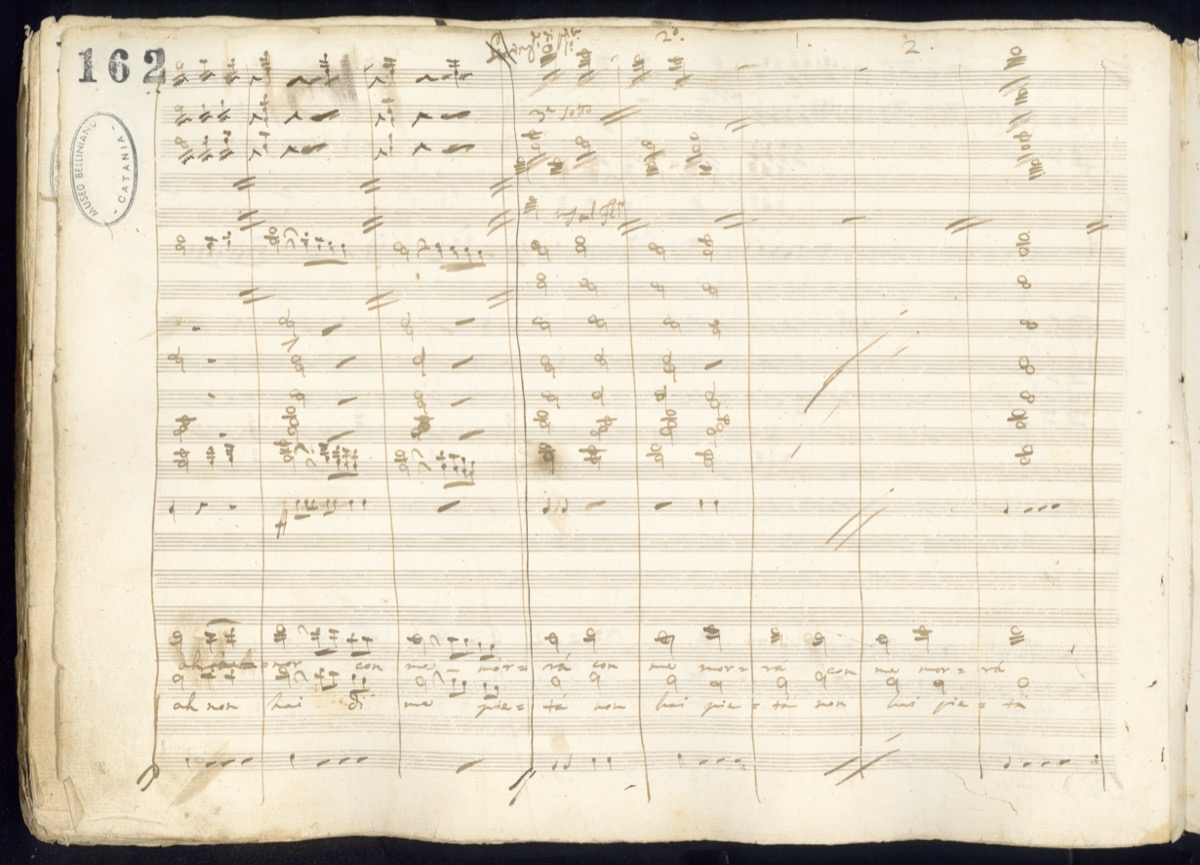 162
MUSEO BELLINIANO
- CATANIA -
2º
2.
mor con me mor= rá con me mor= rá con me mor= rá
ah non hai di me pie= tá non hai pie= tá non hai pie= tá